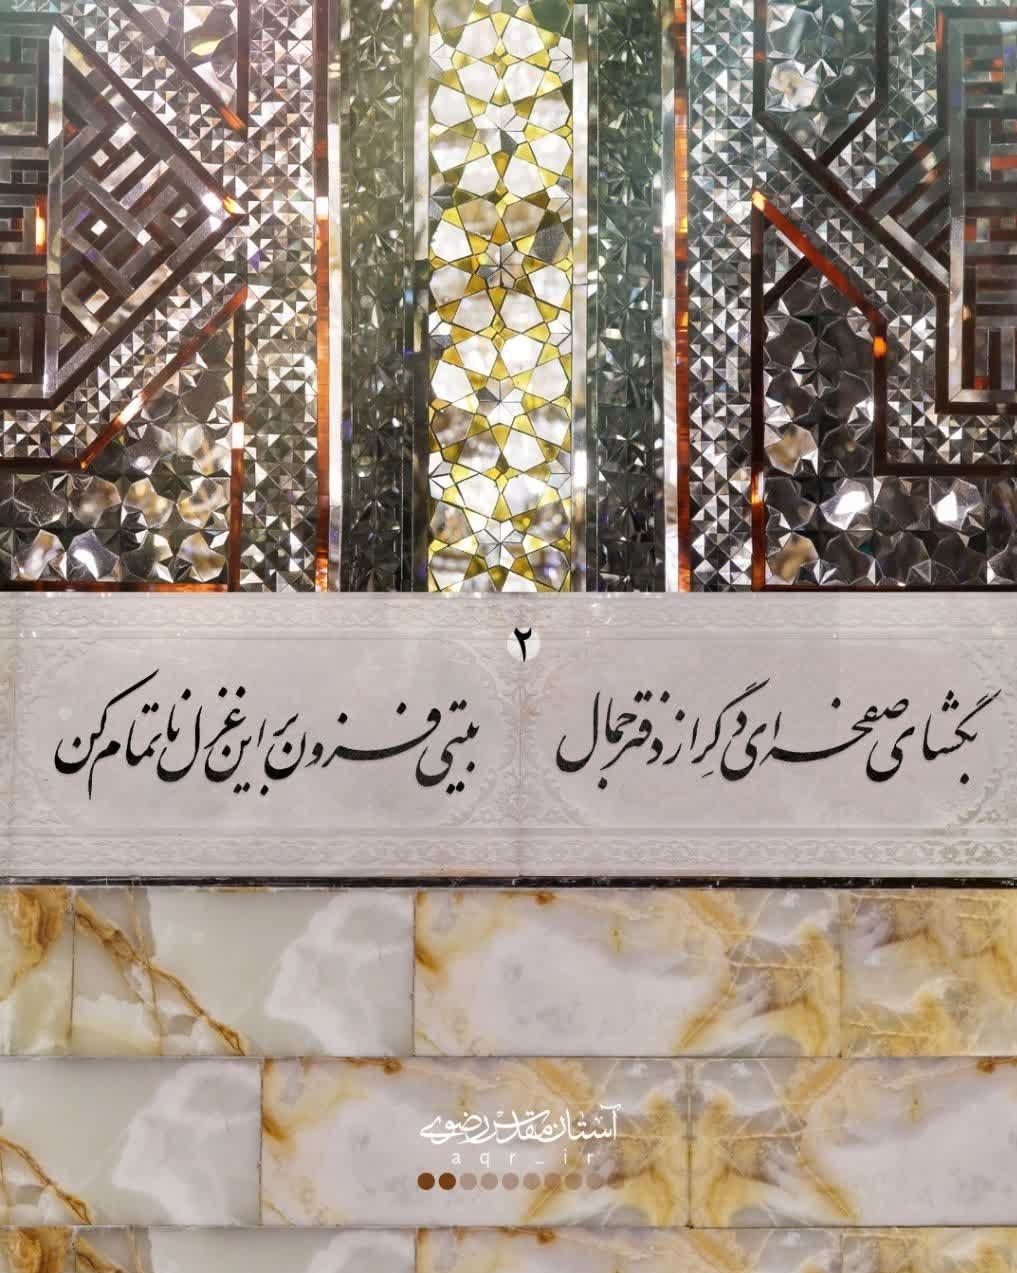 ۲
بگشای صفحه‌ای دگر از دفتر جمال
بیتی فزون بر این غزل ناتمام کن
آستان مقدس رضوی
aqr_ir